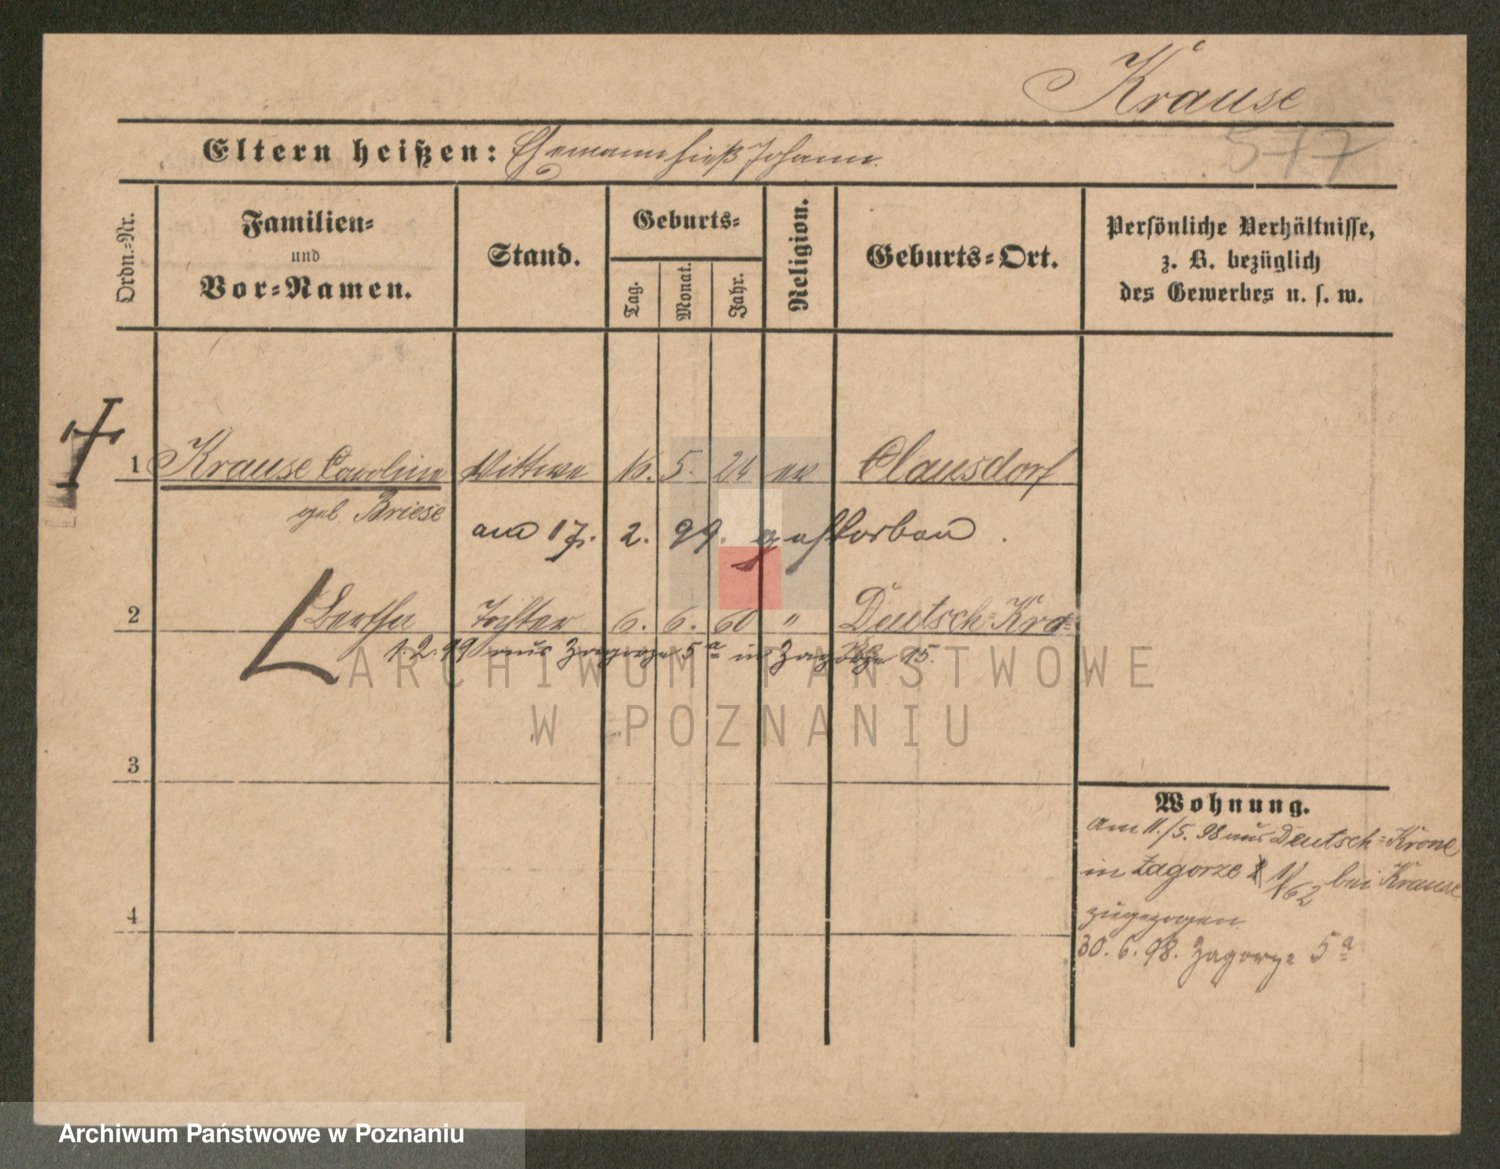 Krause
577
Eltern heißen: Ehemann hieß Johann.
Ordn.-Nr.
Familien- und Vor-Namen.
Stand.
Geburts-
Tag. Monat. Jahr.
Religion.
Geburts-Ort.
Persönliche Verhältnisse, z. B. bezüglich des Gewerbes u. s. w.
1 Krause Caroline Wittwe 16. 5. 24 ev Clausdorf
geb. Briese
am 17. 2. 99. gestorben.
2 Bertha Tochter 6. 6. 60 " Deutsch-Kro
1. 2. 99 aus Zagorze 5a in Zagorze 15.
3
4
Wohnung.
Am 11./5. 98 aus Deutsch-Krone
in Zagorze bei Krause
zugezogen
30. 6. 98. Zagorze 5a
ARCHIWUM PAŃSTWOWE
W POZNANIU
Archiwum Państwowe w Poznaniu